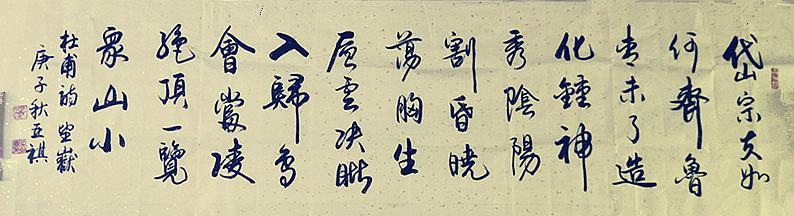 岱宗夫如
何齊魯
青未了造
化鍾神
秀陰陽
割昏曉
蕩胸生
層雲決眦
入歸鳥
會當凌
絕頂一覽
眾山小
杜甫詩望嶽
庚子秋亞祺